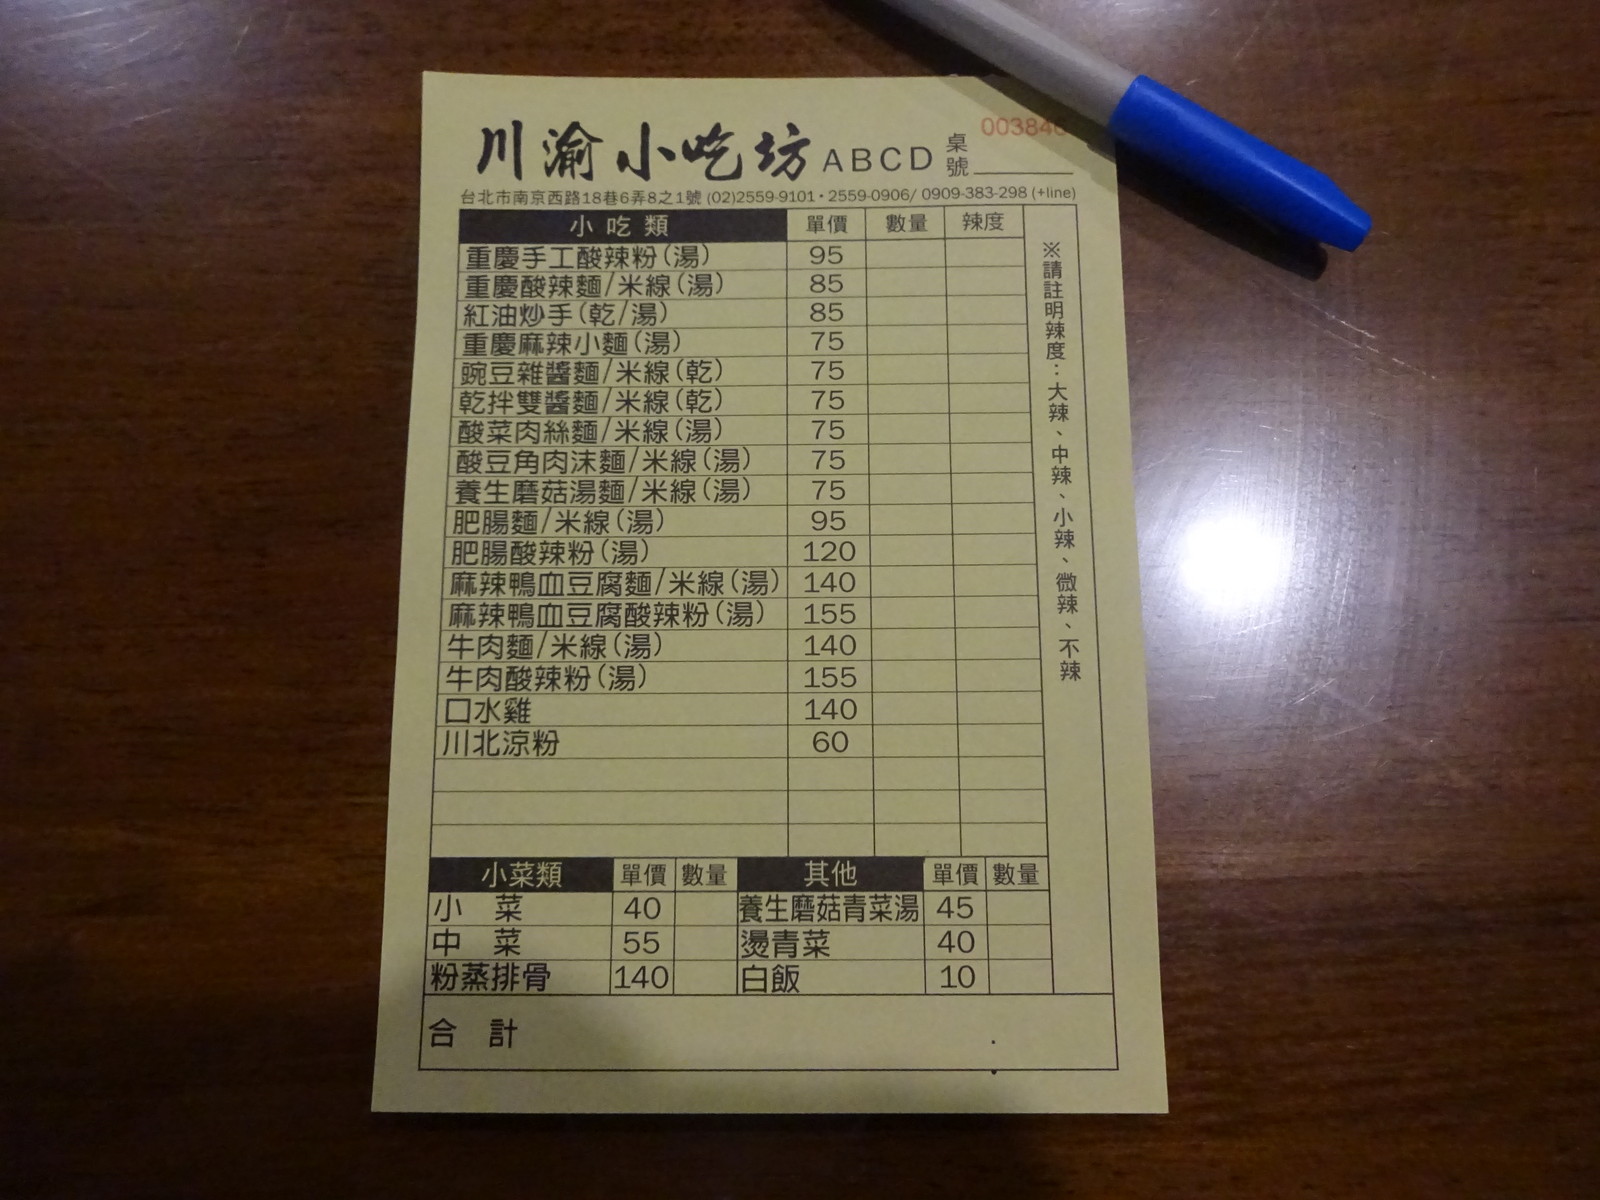 川渝小吃坊 ABCD 桌號
台北市南京西路18巷6弄8之1號 (02)2559-9101・2559-0906/ 0909-383-298 (+line)
小吃類 單價 數量 辣度
重慶手工酸辣粉(湯) 95
重慶酸辣麵/米線(湯) 85
紅油炒手(乾/湯) 85
重慶麻辣小麵(湯) 75
豌豆雜醬麵/米線(乾) 75
乾拌雙醬麵/米線(乾) 75
酸菜肉絲麵/米線(湯) 75
酸豆角肉沫麵/米線(湯) 75
養生磨菇湯麵/米線(湯) 75
肥腸麵/米線(湯) 95
肥腸酸辣粉(湯) 120
麻辣鴨血豆腐麵/米線(湯) 140
麻辣鴨血豆腐酸辣粉(湯) 155
牛肉麵/米線(湯) 140
牛肉酸辣粉(湯) 155
口水雞 140
川北涼粉 60
※請註明辣度：大辣、中辣、小辣、微辣、不辣
小菜類 單價 數量 其他 單價 數量
小 菜 40 養生磨菇青菜湯 45
中 菜 55 燙青菜 40
粉蒸排骨 140 白飯 10
合 計